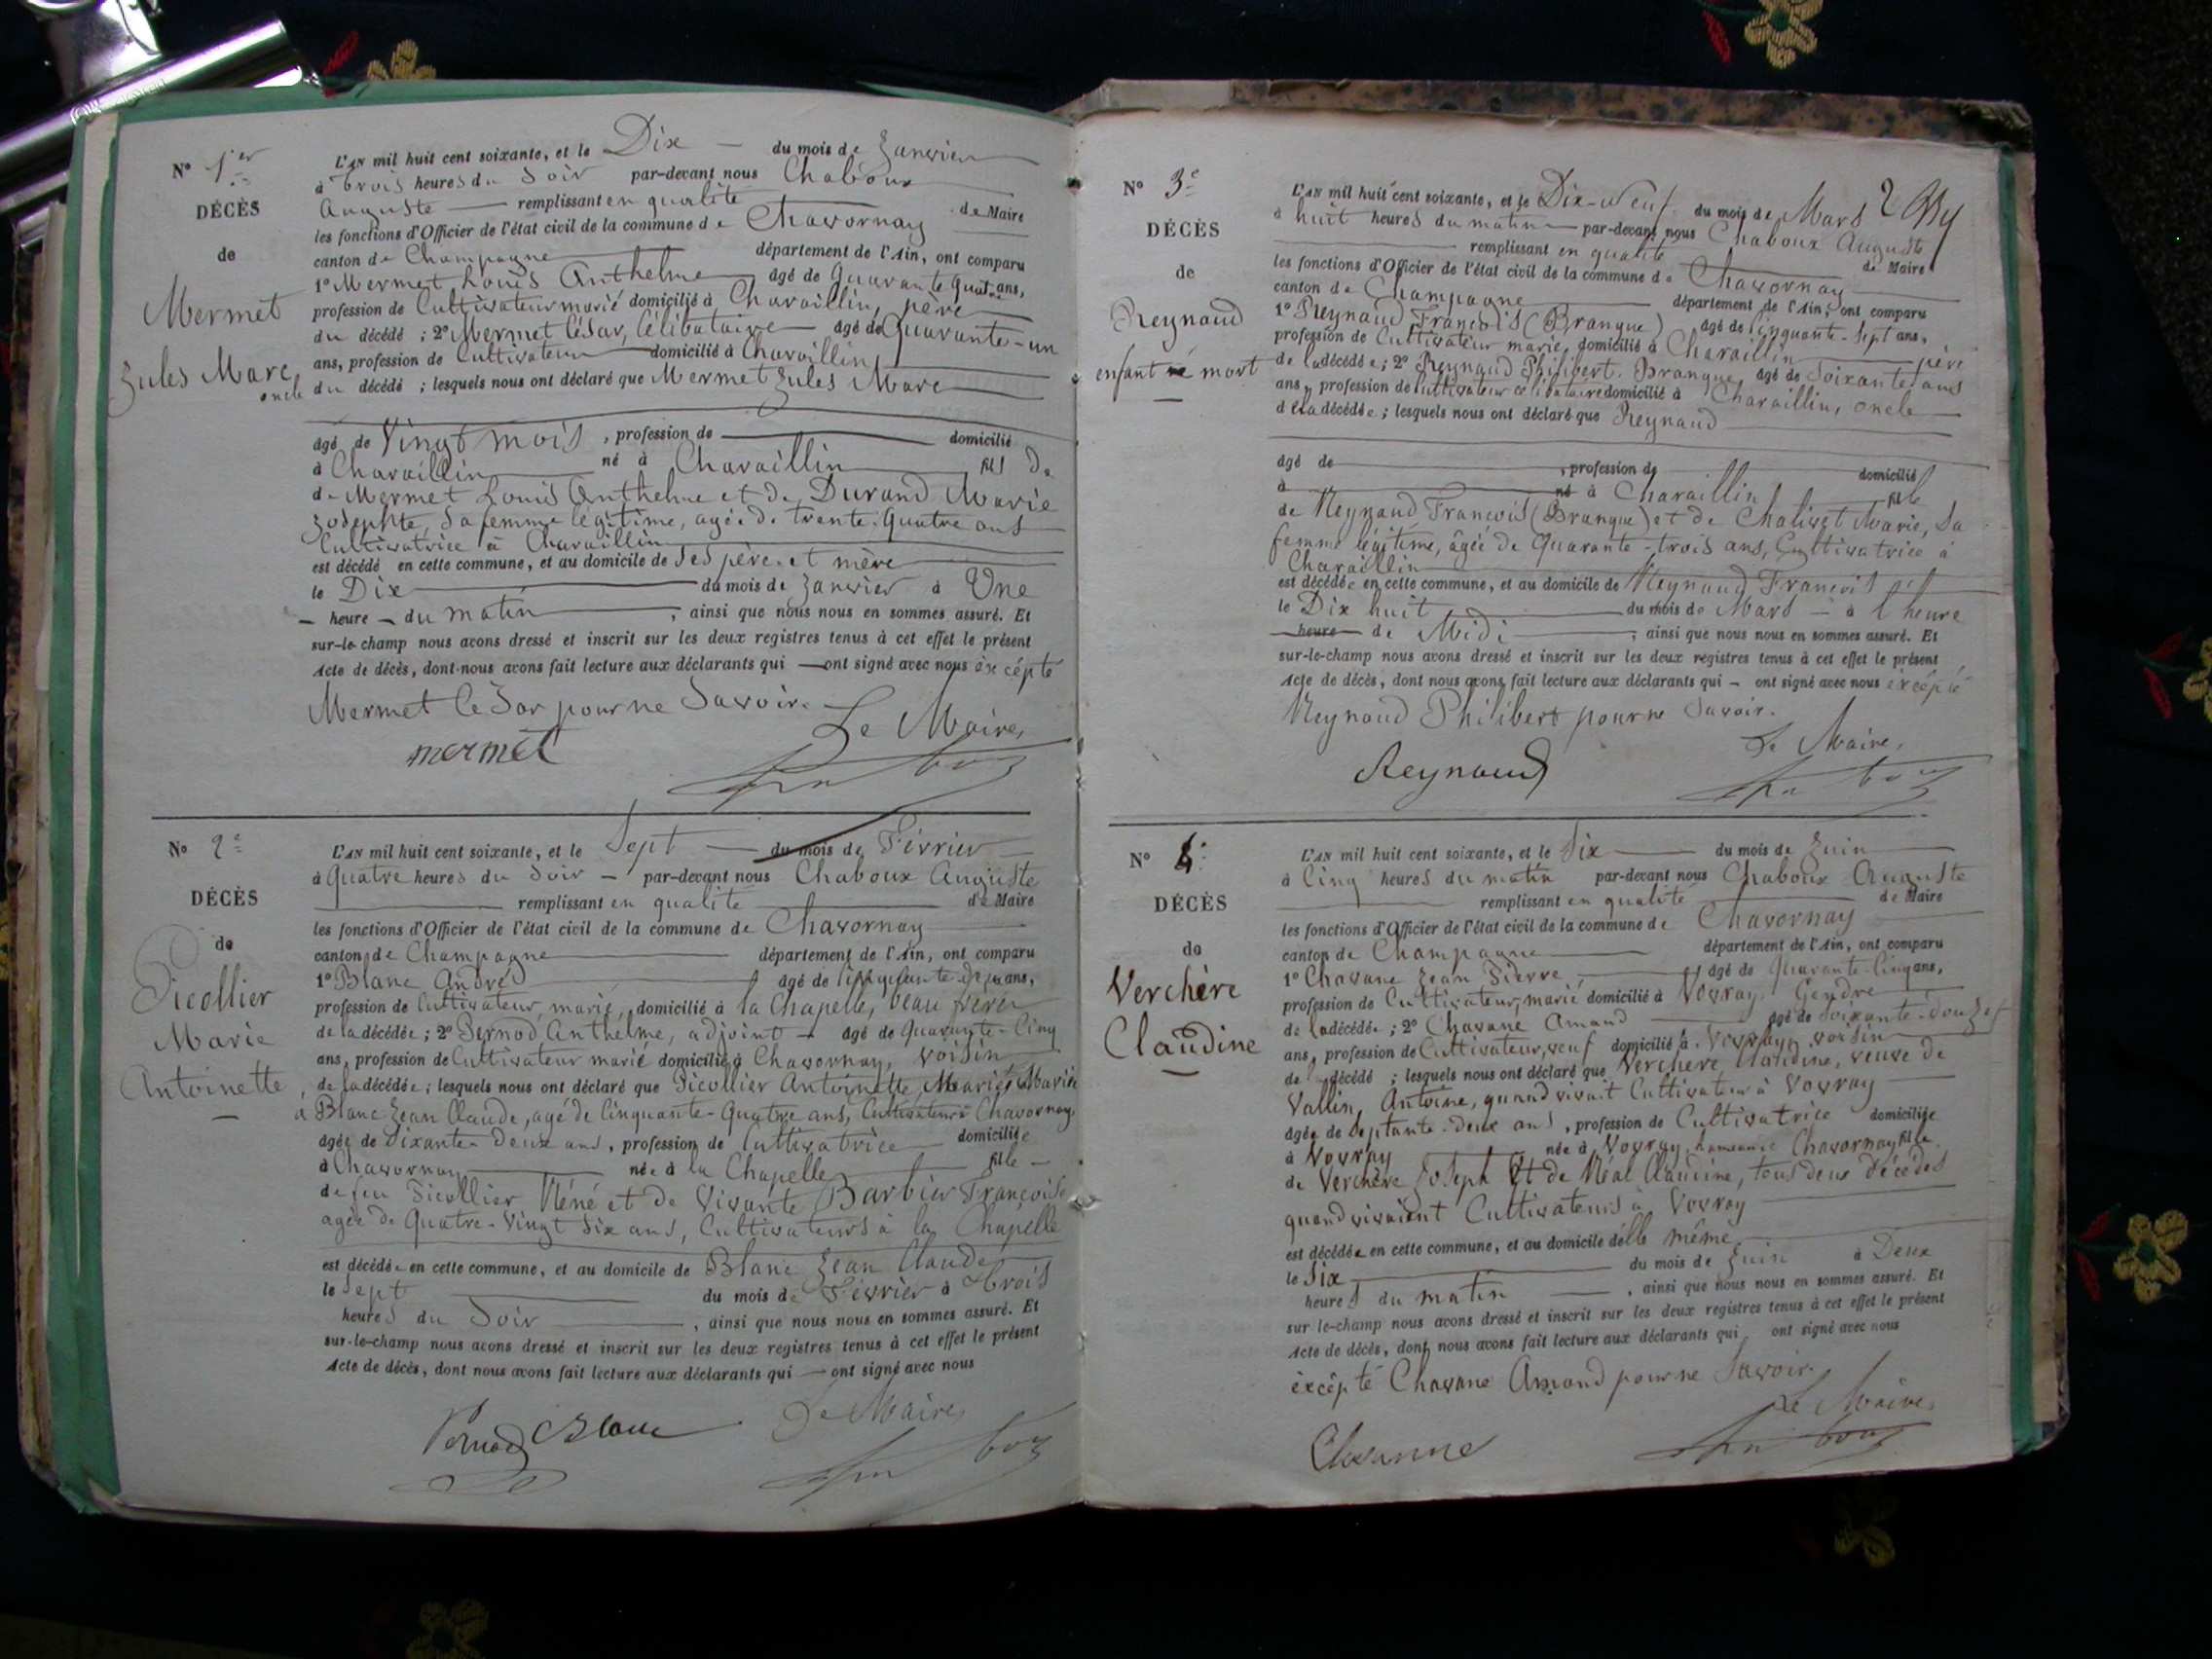 N° 1er
DÉCÈS
de
Mermet
Jules Marc
L'AN mil huit cent soixante, et le Dix — du mois de Janvier
à trois heures du Soir par-devant nous Chaboux
Auguste — remplissant en qualité de Maire
les fonctions d'Officier de l'état civil de la commune de Chavornay
canton de Champagne département de l'Ain, ont comparu
1° Mermet Louis Anthelme âgé de Quarante Quatre ans,
profession de Cultivateur marié domicilié à Charaillin, père
du décédé ; 2° Mermet César, Célibataire âgé de Quarante-un
ans, profession de Cultivateur domicilié à Charaillin,
oncle du décédé ; lesquels nous ont déclaré que Mermet Jules Marc
âgé de Vingt mois, profession de — domicilié
à Charaillin né à Charaillin fils de
de Mermet Louis Anthelme et de Durand Marie
Josephte, Sa femme légitime, agée de trente Quatre ans
Cultivatrice à Charaillin
est décédé en cette commune, et au domicile de Ses père et mère
le Dix du mois de Janvier à Une
— heure — du matin, ainsi que nous nous en sommes assuré. Et
sur-le-champ nous avons dressé et inscrit sur les deux registres tenus à cet effet le présent
Acte de décès, dont nous avons fait lecture aux déclarants qui — ont signé avec nous èxcépté
Mermet César pour ne Savoir.
Le Maire,
mermet
N° 2e
DÉCÈS
de
Picollier
Marie
Antoinette
L'AN mil huit cent soixante, et le Sept — du mois de Février
à Quatre heures du Soir — par-devant nous Chaboux Auguste
remplissant en qualité de Maire
les fonctions d'Officier de l'état civil de la commune de Chavornay
canton de Champagne département de l'Ain, ont comparu
1° Blanc André âgé de Cinquante-deux ans,
profession de Cultivateur, marié, domicilié à la Chapelle, beau frère
de la décédée ; 2° Pernod Anthelme, adjoint — âgé de Quarante-Cinq
ans, profession de Cultivateur marié domicilié à Chavornay, voisin
de la décédée ; lesquels nous ont déclaré que Picollier Antoinette, Marie, Mariée
à Blanc Jean Claude, agé de Cinquante-Quatre ans, Cultivateur à Chavornay
âgée de Soixante-Deux ans, profession de Cultivatrice domiciliée
à Chavornay née à la Chapelle fille
de feu Picollier Réné et de Vivante Barbier Françoise
agée de Quatre-Vingt Six ans, Cultivateurs à la Chapelle
est décédée en cette commune, et au domicile de Blanc Jean Claude
le Sept du mois de Février à trois
heures du Soir, ainsi que nous nous en sommes assuré. Et
sur-le-champ nous avons dressé et inscrit sur les deux registres tenus à cet effet le présent
Acte de décès, dont nous avons fait lecture aux déclarants qui — ont signé avec nous
Le Maire,
Pernod Blanc
N° 3e
DÉCÈS
de
Reynaud
enfant né mort
L'AN mil huit cent soixante, et le Dix-neuf du mois de Mars
à huit heures du matin par-devant nous Chaboux Auguste
remplissant en qualité de Maire
les fonctions d'Officier de l'état civil de la commune de Chavornay
canton de Champagne département de l'Ain, ont comparu
1° Reynaud François (Branque) âgé de Cinquante-Sept ans,
profession de Cultivateur marié, domicilié à Charaillin père
de la décédée ; 2° Reynaud Philibert Branque, âgé de Soixante ans
ans, profession de Cultivateur célibataire domicilié à Charaillin, oncle
de la décédée ; lesquels nous ont déclaré que Reynaud
âgé de — , profession de domicilié
à né à Charaillin fille
de Reynaud François (Branque) et de Chalivet Marie, Sa
femme légitime, âgée de Quarante-trois ans, Cultivatrice à
Charaillin
est décédée en cette commune, et au domicile de Reynaud François
le Dix huit du mois de Mars à l'heure
heure de Midi, ainsi que nous nous en sommes assuré. Et
sur-le-champ nous avons dressé et inscrit sur les deux registres tenus à cet effet le présent
Acte de décès, dont nous avons fait lecture aux déclarants qui — ont signé avec nous excépté
Reynaud Philibert pour ne Savoir.
Le Maire,
Reynaud
N° 4e
DÉCÈS
de
Verchère
Claudine
L'AN mil huit cent soixante, et le Six du mois de Juin
à Cinq heures du matin par-devant nous Chaboux Auguste
remplissant en qualité de Maire
les fonctions d'Officier de l'état civil de la commune de Chavornay
canton de Champagne département de l'Ain, ont comparu
1° Chavane Jean Pierre, âgé de Quarante-Cinq ans,
profession de Cultivateur, marié domicilié à Vovray, Gendre
de la décédée ; 2° Chavane Amand âgé de Soixante-Douze
ans, profession de Cultivateur, veuf domicilié à Vovray, voisin
de la décédé ; lesquels nous ont déclaré que Verchère Claudine, veuve de
Vallin, Antoine, quand vivait Cultivateur à Vovray
âgée de Septante-deux ans, profession de Cultivatrice domiciliée
à Vovray née à Vovray, hameau de Chavornay fille
de Verchère Joseph Et de Réal Claudine, tous deux décédés
quand vivaient Cultivateurs à Vovray
est décédée en cette commune, et au domicile d'elle même
le Six du mois de Juin à Deux
heures du matin, ainsi que nous nous en sommes assuré. Et
sur-le-champ nous avons dressé et inscrit sur les deux registres tenus à cet effet le présent
Acte de décès, dont nous avons fait lecture aux déclarants qui ont signé avec nous
èxcépté Chavane Amand pour ne Savoir.
Le Maire,
Chavanne